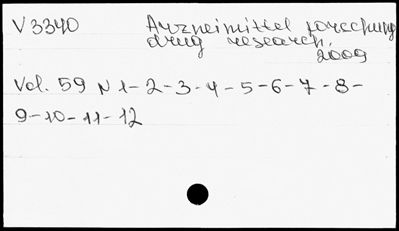 V 3340 Arzneimittel forschung
drug research.
2009
Vol. 59 N 1-2-3-4-5-6-7-8-
9-10-11-12